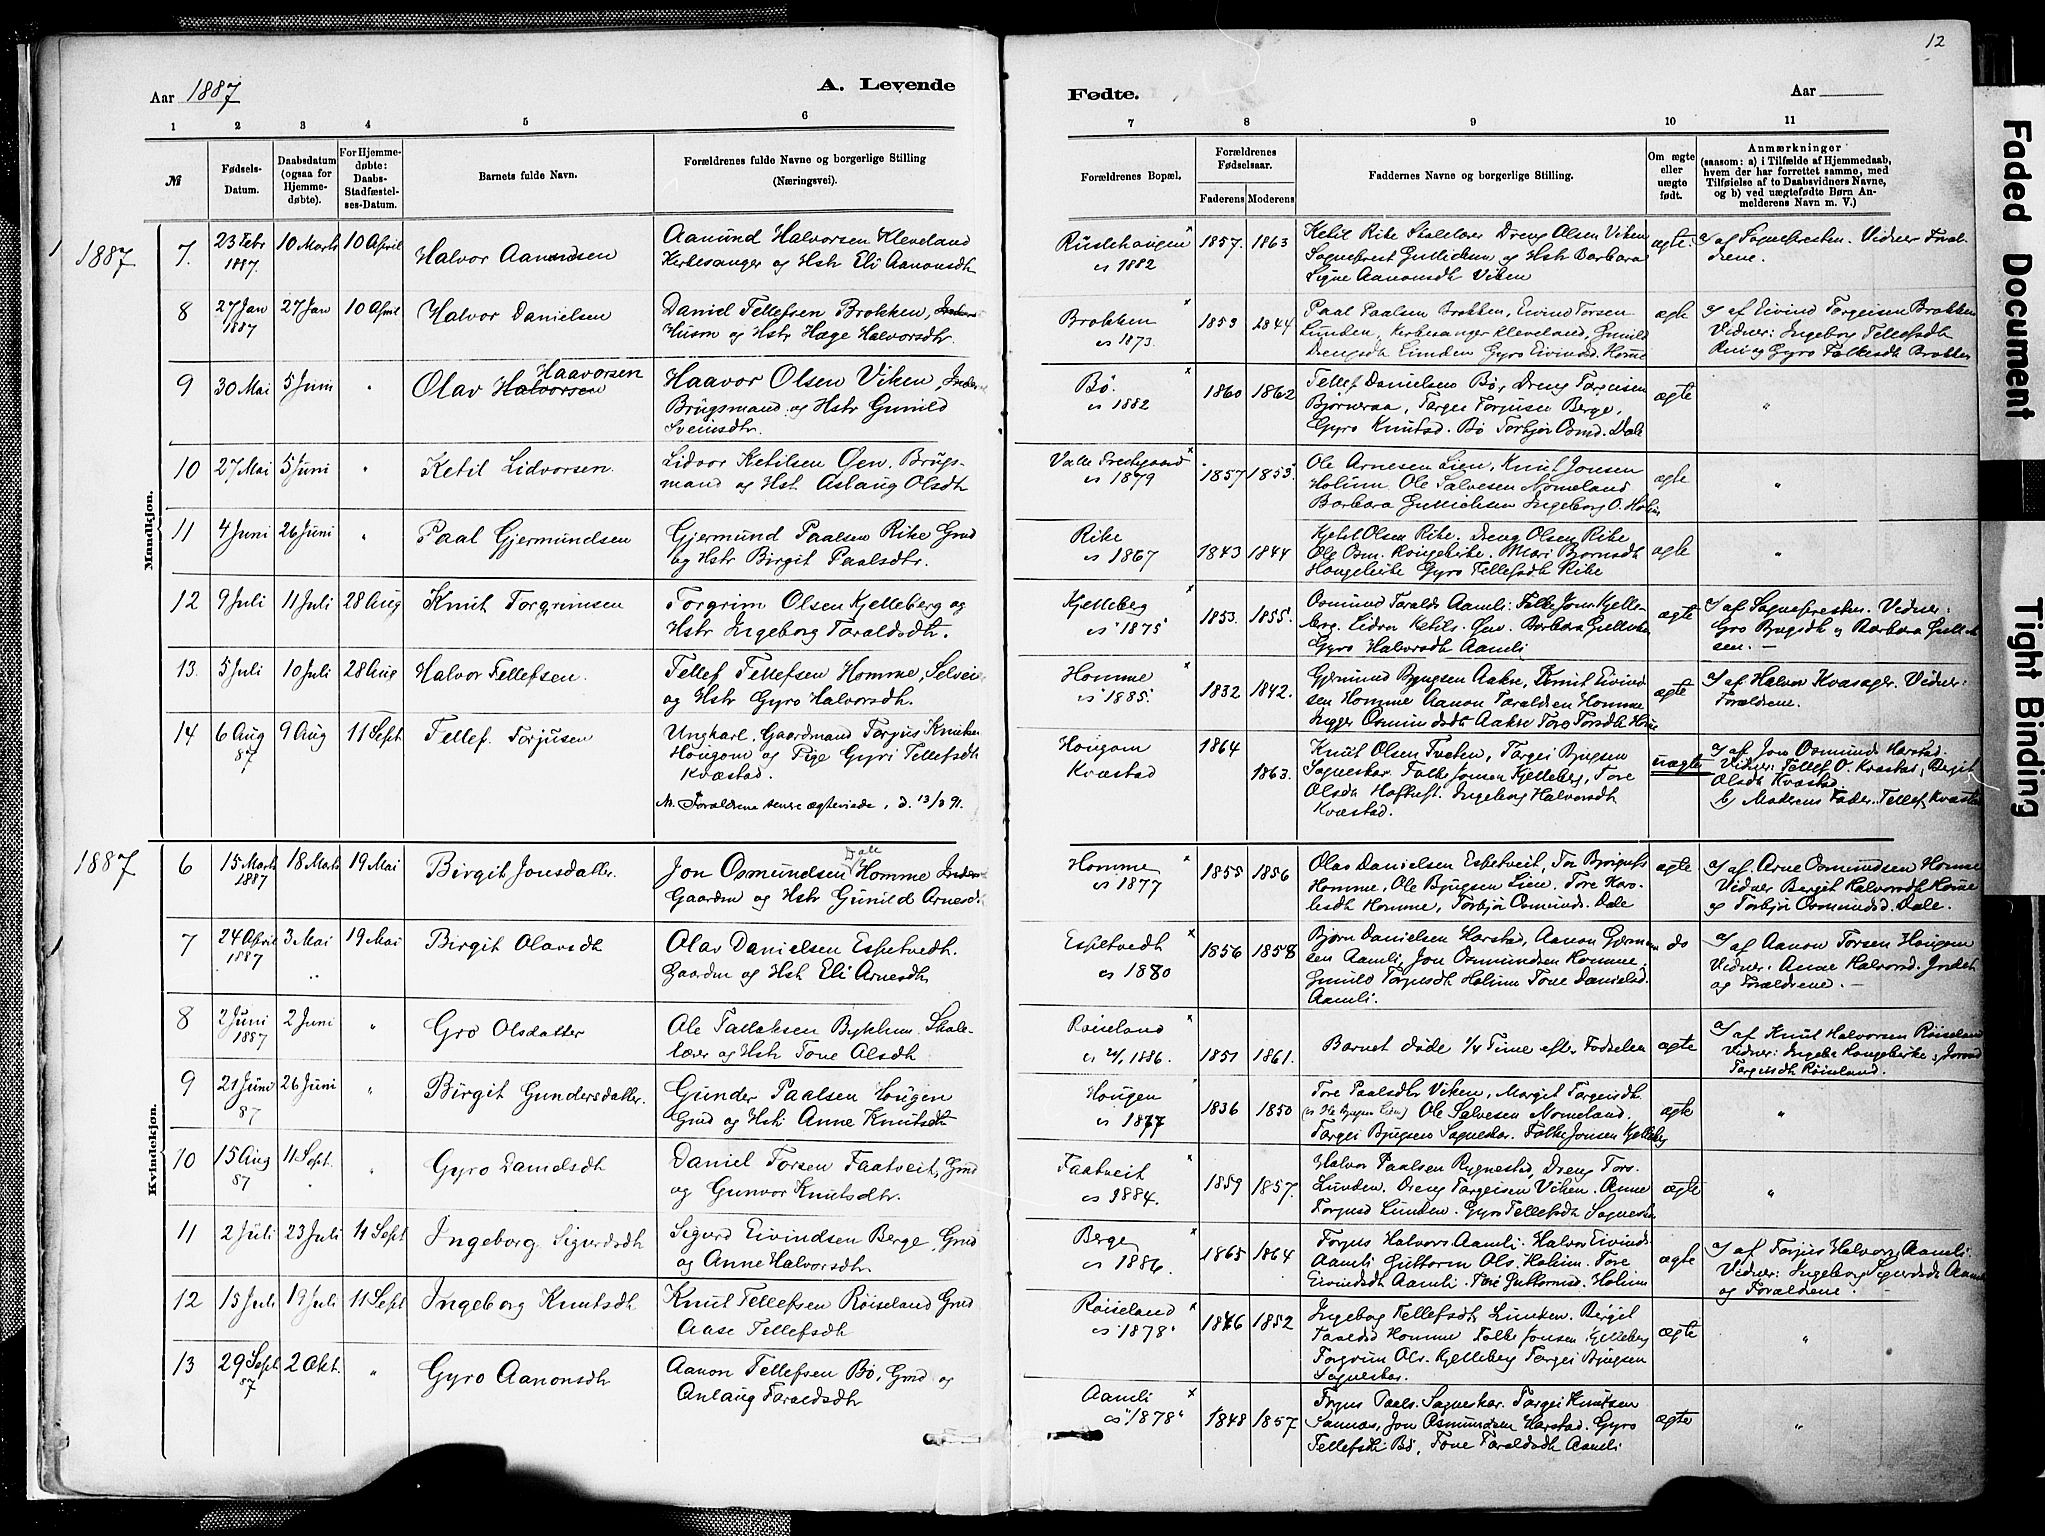 12
Aar 1887
A. Levende
Fødte.
Aar
1 2 3 4 5 6
7 8 9 10 11
№
Fødsels-Datum.
Daabsdatum (ogsaa for Hjemme-døbte).
For Hjemme-døbte: Daabs-Stadfæstel-ses-Datum.
Barnets fulde Navn.
Forældrenes fulde Navne og borgerlige Stilling (Næringsvei).
Forældrenes Bopæl.
Forældrenes Fødselsaar.
Faderens Moderens
Faddernes Navne og borgerlige Stilling.
Om ægte eller uægte født.
Anmærkninger
(saasom: a) i Tilfælde af Hjemmedaab,
hvem der har forrettet samme, med
Tilføielse af to Daabsvidners Navne,
og b) ved uægtefødte Børn An-
melderens Navn m. V.)
Mandkjøn.
1887
7. 23 Febr 1887. 10 Marts 10 April Halvor Aanundsen
Aanund Halvorsen Kleveland
Kirkesanger og Hstr Eli Aanonsdtr
1882
1857. 1863
Ketil Rike Skolelærer Dreng Olsen Viken
Sogneprest Gullichsen og Hstr Barbara
Signe Aanonsdtr Viken
ægte.
a/ af Sognepresten. Vidner Foræl-
drene.
8 27 Jan 1887 27 Jan 10 April Halvor Danielsen
Daniel Tellefsen Brokken,
Husm og Hstr Hæge Halvorsdtr.
Brokken
1873.
1853 1844
Paal Paalsen Brokken, Eivind Torsen
Lunden, Kirkesanger Kleveland, Gunild
Drengsdtr Lunden Gyro Eivindsd. Homme
ægte
a/ af Eivind Torgeisen Brokken
Vidner: Ingeborg Tellefsdtr
og Gyro Folkesdtr Brokken
9 30 Mai 5 Juni " Olav Halvorsen Haavorsen
Haavor Olsen Viken,
Brugsmand og Hstr Gunild
Sveinsdtr.
Bø.
1882
1860 1862
Tellef Danielsens Bø, Dreng Torgeisen
Bjørnaraa, Targei Torjusen Berge,
Gyro Knutsd. Bø Torbjør Osmd. Dale
ægte
"
10 27 Mai 5 Juni " Ketil Lidvorsen.
Lidvor Ketilsen Øen. Brugs-
mand og Hstr Aslaug Olsdtr
Valle Prestegaard
1879
1857 1853.
Ole Arnesen Lien, Knut Jonsen
Holum. Ole Salvesen Nomeland
Barbara Gullichsen Ingeborg O. Holum
ægte
"
11 4 Juni 26 Juni " Paal Gjermundsen
Gjermund Paalsen Rike Gmd
og Hstr Birgit Paalsdtr.
Rike
1867
1843 1844
Kjetil Olsen Rike. Dreng Olsen Rike
Ole Osm. Haugekirke. Mari Bjørnsdtr
Gyro Tellefsdtr Rike
ægte
"
12 9 Juli 11 Juli 28 Aug Knut Torgrimsen
Torgrim Olsen Kjelleberg og
Hstr Ingeborg Taraldsdtr.
Kjelleberg
1875
1853. 1855.
Osmund Taralds Aamli. Folke Jons Kjelle-
berg. Lidvor Ketils. Øen. Barbara Gullichsen
Gyro Halvorsdtr Aamli
ægte
a/ af Sognepresten. Vidner:
Gro Bjugsdtr og Barbara Gullich
sen. —
13. 5 Juli 10 Juli 28 Aug Halvor Tellefsen.
Tellef Tellefsen Homme, Selveier
og Hstr Gyro Halvorsdtr.
Homme
1885.
1832 1842.
Gjermund Bjugsen Aakre, Knut Eivind
sen Homme Aanon Taraldsen Homme
Ingger Osmundsdtr Aakre Tore Torsdtr Homme
ægte
a/ af Halvor Kvasager. Vidner:
Forældrene.
14 6 Aug 87 9 Aug 11 Sept Tellef. Torjusen
Ungkarl, Gaardmand Torjus Knutsen
Hougom og Pige Gyri Tellefsdtr
Kvæstad.
N. Forældrene senere ægteviede, d. 13/3 91.
Hougom
Kvæstad
1864
1863.
Knut Olsen Tveten, Targei Bjugsen
Sagneskar. Folke Jonsen Kjelleberg, Tore
Olsdtr Hoftuft. Ingeborg Halvorsdtr
Kvæstad.
uægte
a/ af Jon Osmunds Harstad.
Vidner: Tellef O. Kvæstad, Birgit
Olsdtr Kvæstad
b) Moderens Fader. Tellef Kvæstad
Kvindekjøn.
1887
6 15 Marts 1887 18 Marts 19 Mai Birgit Jonsdatter.
Jon Osmundsen Dale Homme
Gaardm og Hstr Gunild Arnesdtr
Homme
1877
1855 1856
Olav Danielsen Espetveit, Tor Bjørgufs
Homme, Ole Bjugsen Lien. Tore
Homme, Torbjør Osmunds. Dale
ægte
a/ af Arne Osmundsen Homme
Vidner Bergit Halvorsdtr Homme
og Torbjør Osmundsd. Dale.
7 24 April 1887 3 Mai 19 Mai Birgit Olavsdtr
Olav Danielsen Espetvedt.
Gaardm og Hstr Eli Arnesdtr
Espetvedt
1880
1856 1858
Bjørn Danielsen Harstad, Aanon Gjermun
sen Aamli, Jon Osmundsen Homme.
Gunild Torjusdtr Holum Tone Danielsd.
Aamli.
do
a/ af Aanon Torsen Hougom
Vidner: Anne Halvorsd.
og Forældrene. —
8 2 Juni 1887 2 Juni " Gro Olsdatter
Ole Tallaksen Bykhum. Skole-
lærer og Hstr Tone Alsdtr
Røiseland
1886.
1851 1861.
Barnet døde 1/4 Time efter Fødselen
ægte
a/ af Knut Halvorsen Røiseland
Vidner: Haugekirke,
Torgeisdtr Røiseland.
9 21 Juni 87 26 Juni " Birgit Gundersdatter.
Gunder Paalsen Hougen
Gmd og Hstr Anne Knutsdtr
Hougen
1877
1836 1850
Tore Paalsdtr Viken, Margit Targeisdtr.
Ole Salvesen Nomeland.
Targei Bjugsen Sagneskar. Folke Jonsen Kjelleberg
ægte
"
10 15 Aug 87 11 Sept. " Gyro Danielsdtr
Daniel Torsen Faatveit, Gmd
og Gunvor Knutsdtr.
Faatveit
1884.
1859 1857.
Halvor Paalsen Rygnestad, Dreng Tors.
Lunden. Dreng Targeisen Viken. Anne
Torjusd Lunden. Gyro Tellefsdtr Sagneskar
ægte
"
11 2 Juli 23 Juli 11 Sept Ingeborg Sigurdsdtr
Sigurd Eivindsen Berge, Gmd
og Anne Halvorsdtr.
Berge
1886.
1865 1864
Torjus Halvors Aamli. Halvor Eivinds
Aamli Guttorm Ols. Holum. Tore
Eivindsdtr Aamli. Tore Guttormsd. Holum
ægte
a/ af Torjus Halvors. Aamli.
Vidner: Ingeborg Sigurdsdtr Aamli
og Forældrene.
12 15 Juli 19 Juli 11 Sept Ingeborg Knutsdtr
Knut Tellefsen Røiseland Gmd
Aase Tellefsdtr
Røiseland
1878
1846 1852
Ingeborg Tellefsdtr Lunden. Bergit
Homme Folke Jonsen Kjelleberg
Torgrim Ols. Kjelleberg Targei Bjugsen
Sagneskar.
ægte
"
13 29 Sept 87 2 Okt. " Gyro Aanonsdtr
Aanon Tellefsen Bø, Gmd og
Anlaug Taraldsdtr
Aamli
1878
1848 1857
Torjus Paals. Sagneskar. Targei Knutsen
Sannæs, Jon Osmundsen Harstad. Gyro
Tellefsdtr Bø, Tone Taraldsdtr Aamli
ægte
"
Faded Document
Tight Binding